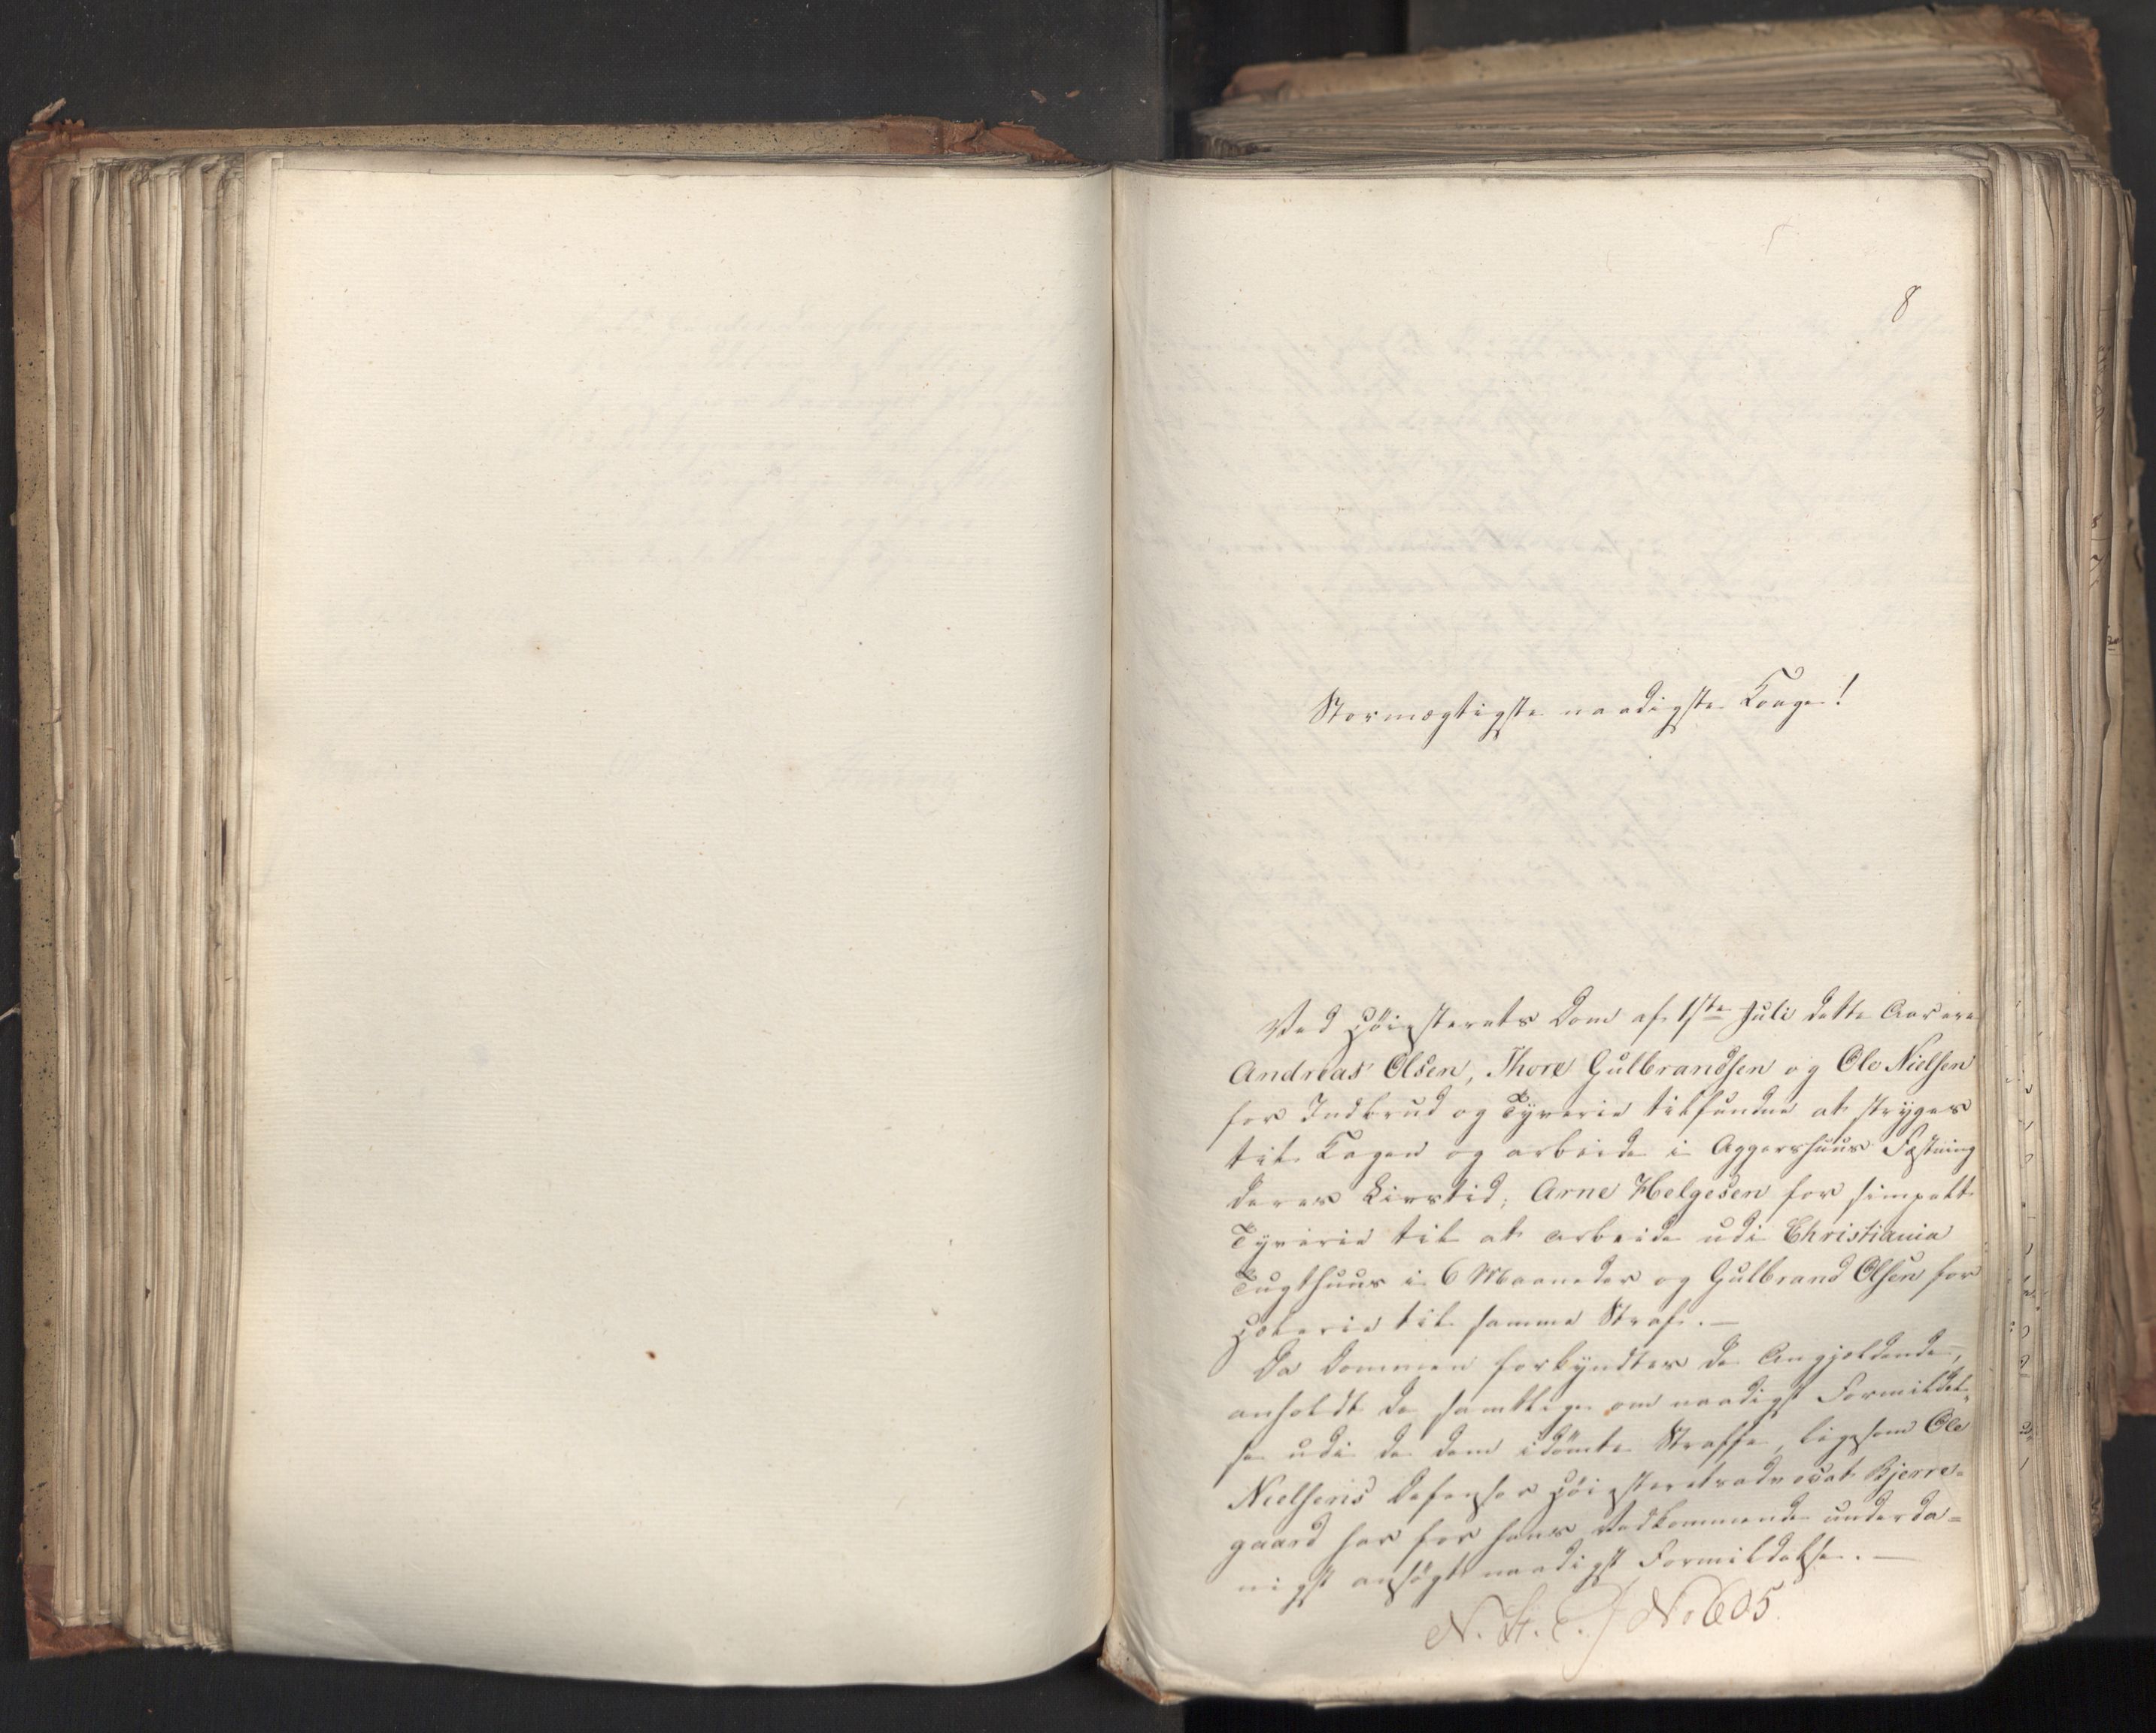 8
Stormægtigste naadigste Konge!
Ved Höiesterets Dom af 1ste Juli dette Aar ere
Andreas Olsen, Thore Gulbrandsen og Ole Nielsen
for Indbrud og Tyverie tilfundne at stryges
til Kagen og arbeide i Aggershuus Fæstning
deres Livstid; Arne Helgesen for simpelt
Tyverie til at arbeide udi Christiania
Tugthuus i 6 Maaneder og Gulbrand Olsen for
Hælerie til samme Straf.—
Da Dommen forkyndtes de Angjældende,
anholdt de samtlige om naadigst Formildel-
se udi de dem idömte Straffe, ligesom Ole
Nielsens Defensor Höiesteretsadvocat Bjerre-
gaard har for hans Vedkommende underda-
nigst ansögt naadigst Formildelse.—
N. St. C. J No 605.